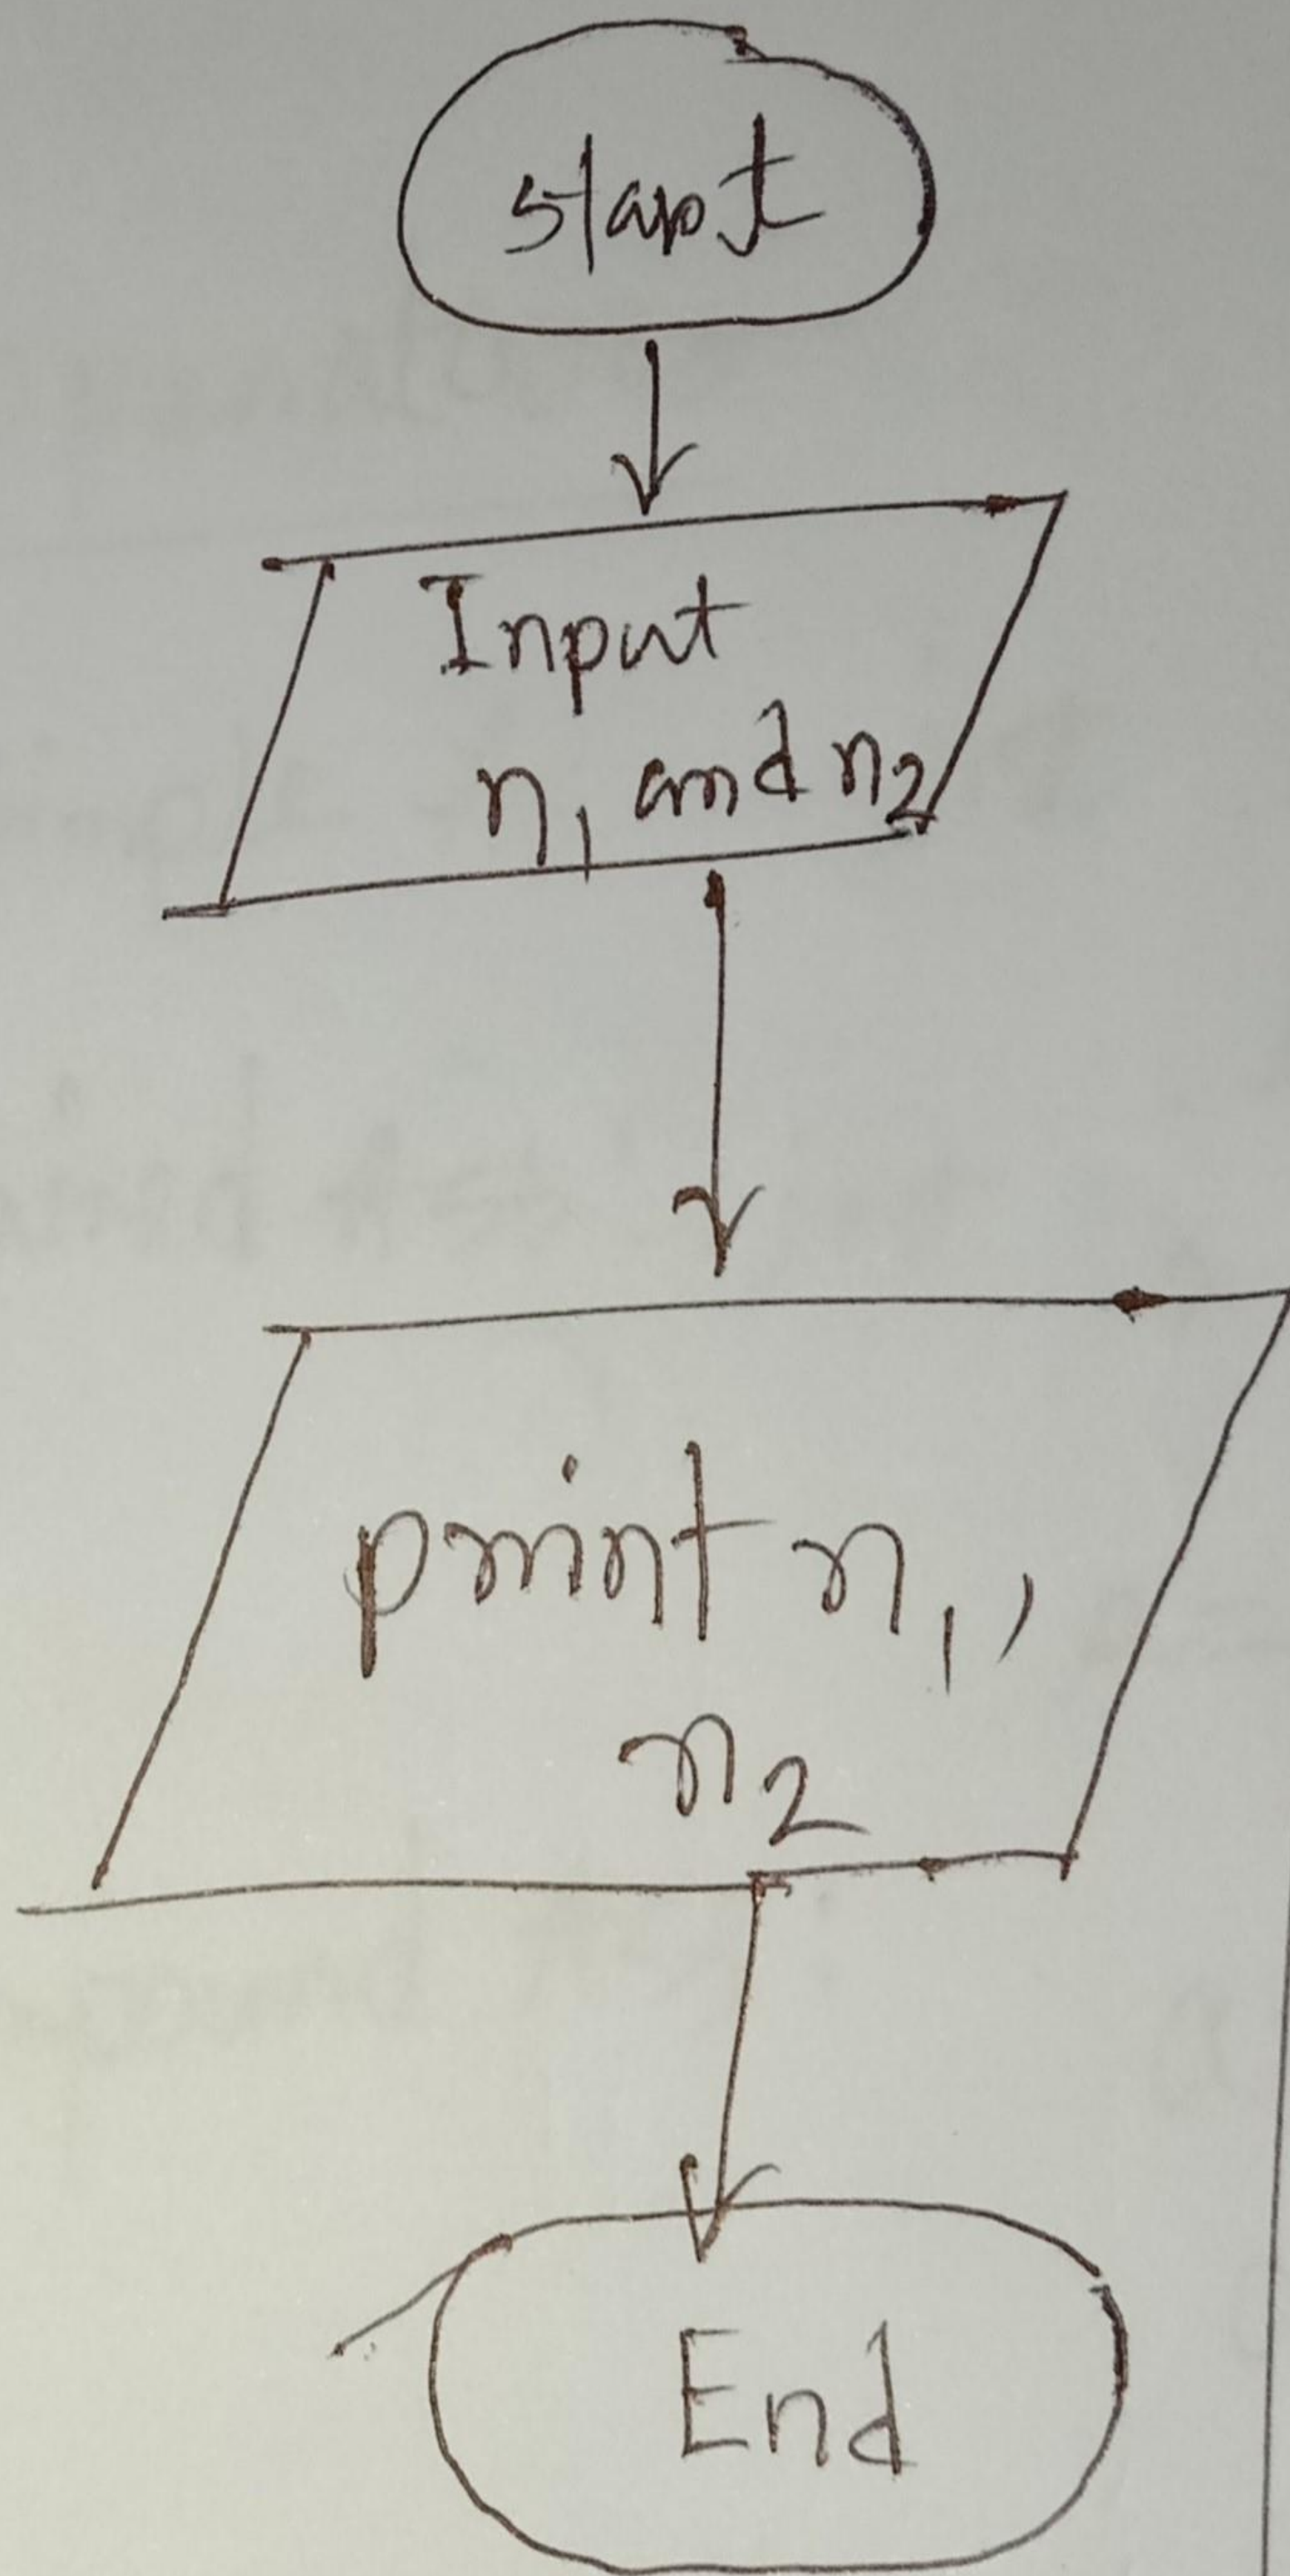 start
Input
n₁ and n₂
print n₁,
n₂
End